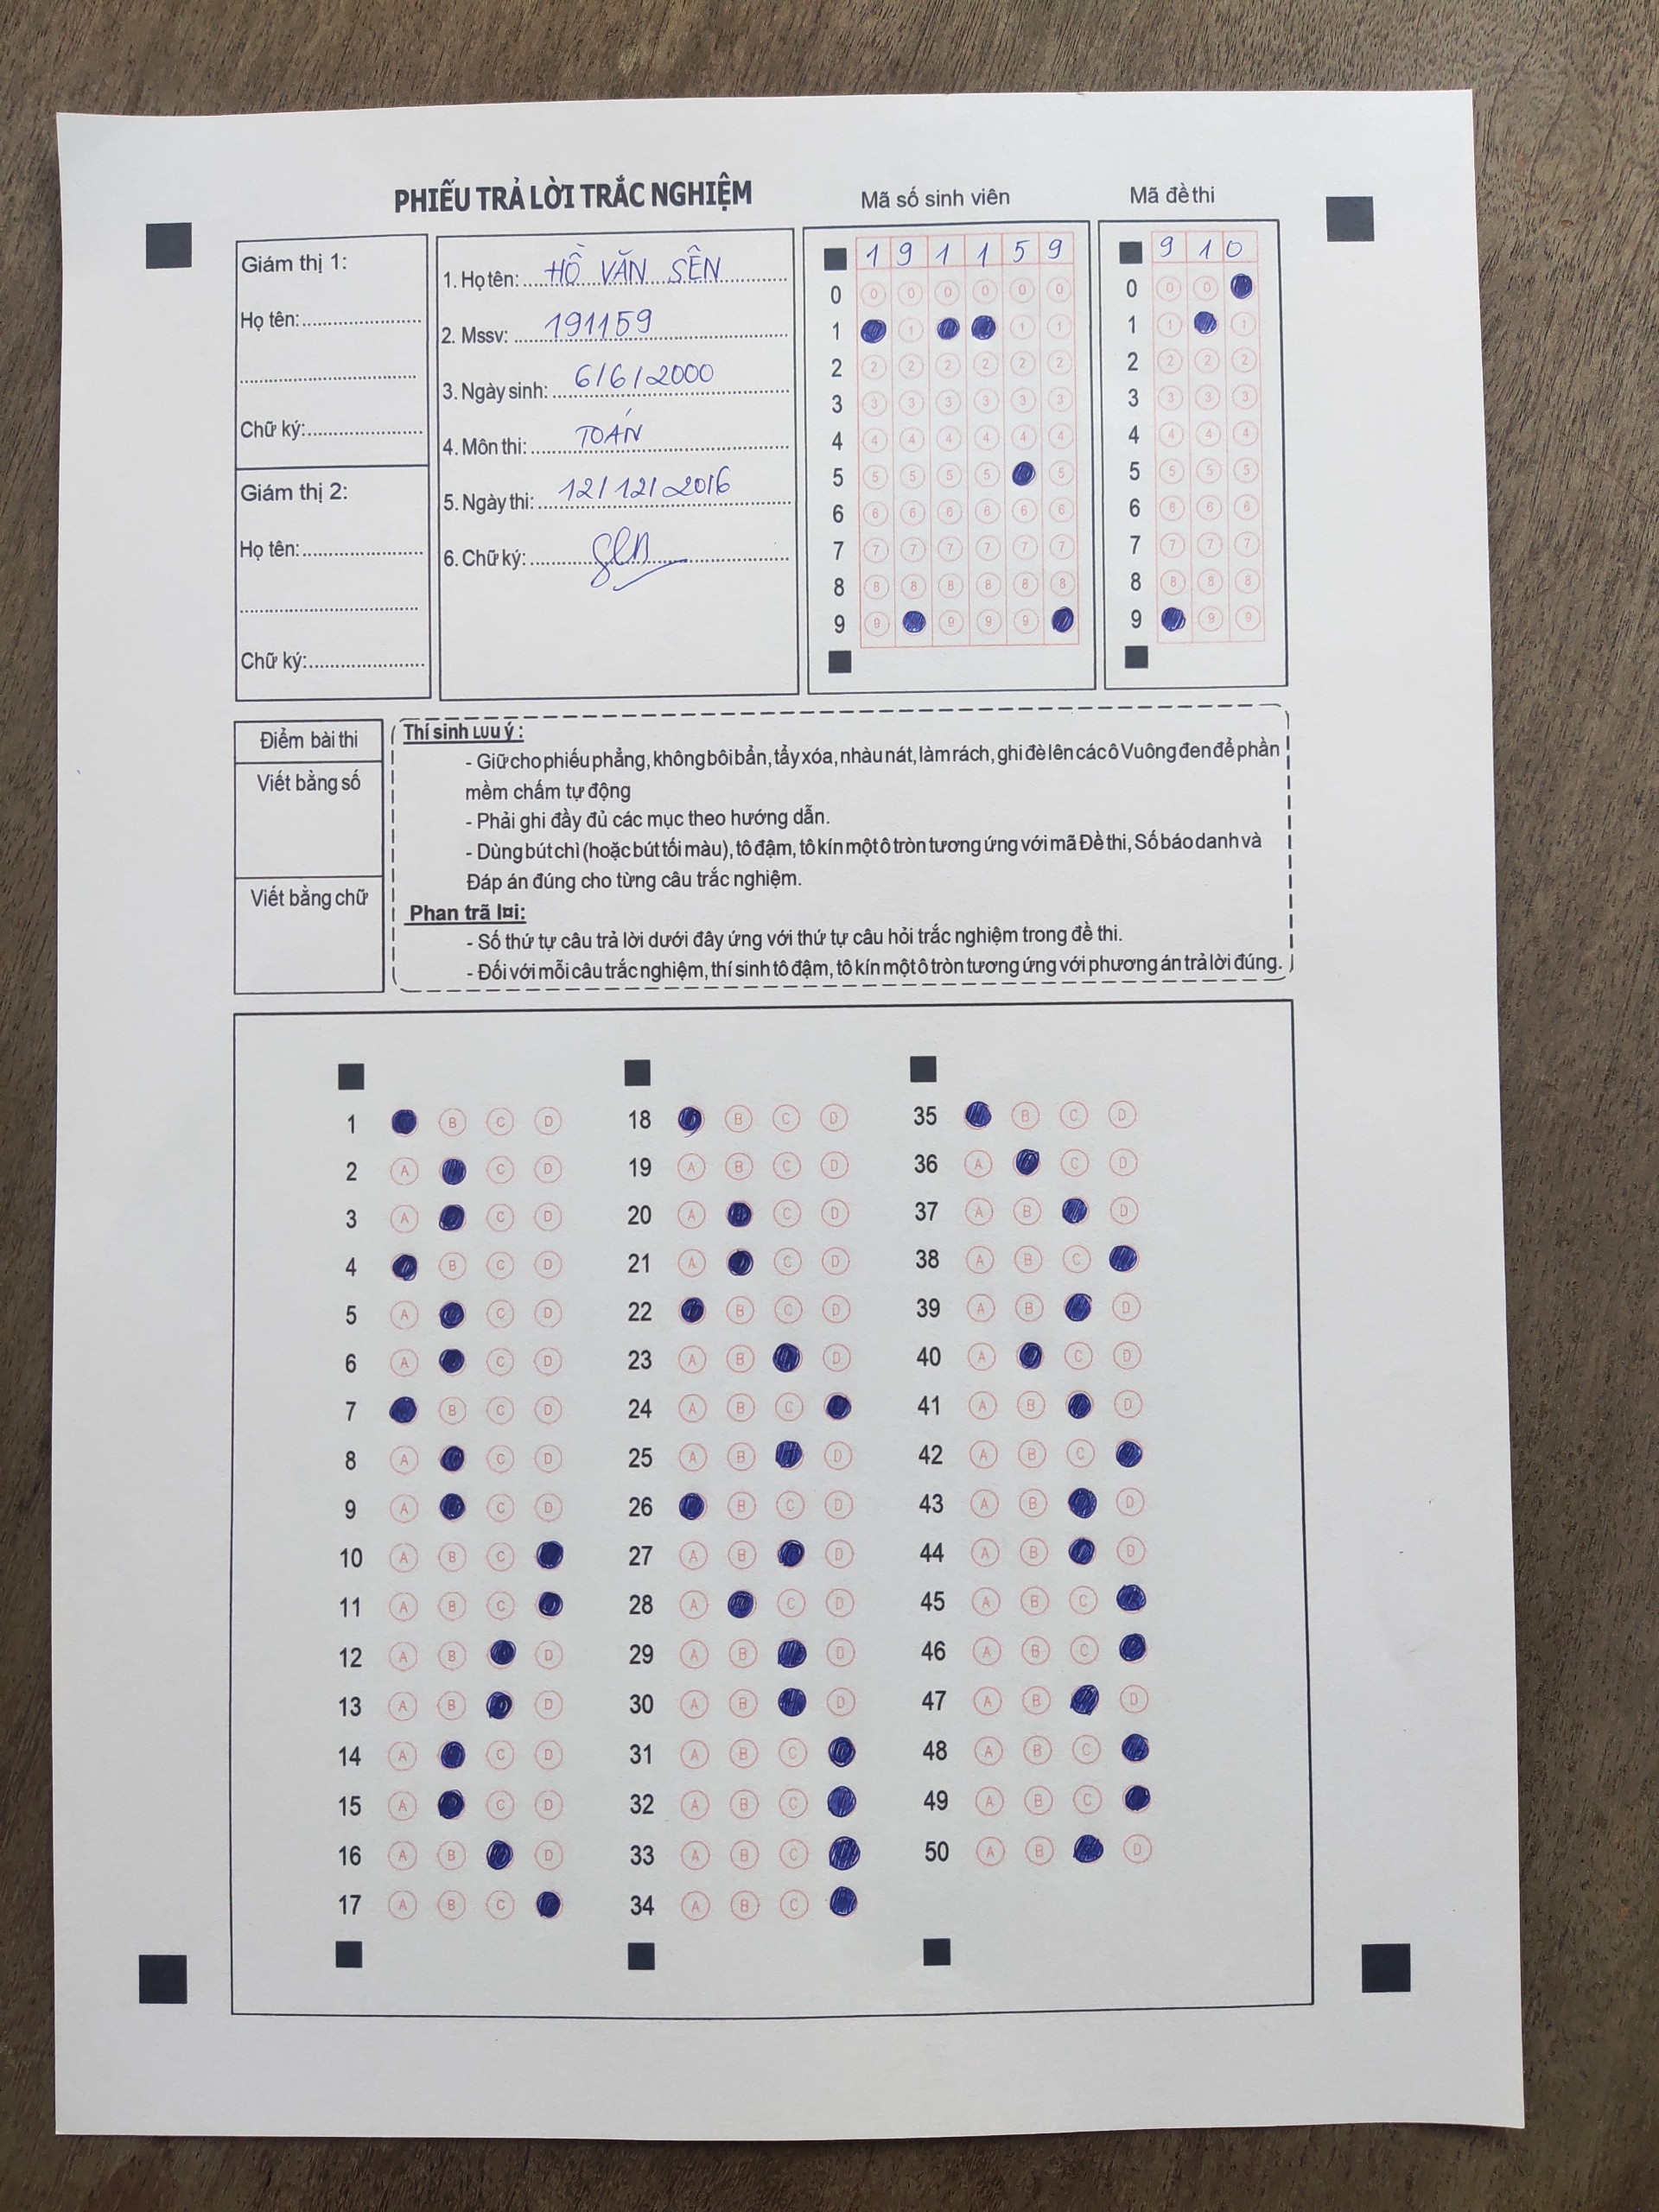 PHIẾU TRẢ LỜI TRẮC NGHIỆM
Giám thị 1:
Họ tên:
Chữ ký:
Giám thị 2:
Họ tên:
Chữ ký:
1. Họ tên: HỒ VĂN SÊN
2. Mssv: 191159
3. Ngày sinh: 6/6/2000
4. Môn thi: TOÁN
5. Ngày thi: 12/12/2016
6. Chữ ký: Sen
Mã số sinh viên
1 9 1 1 5 9
0 0 0 0 0 0 0
1 1 1 1
2 2 2 2 2 2 2
3 3 3 3 3 3 3
4 4 4 4 4 4 4
5 5 5 5 5 5
6 6 6 6 6 6 6
7 7 7 7 7 7 7
8 8 8 8 8 8 8
9 9 9 9 9
Mã đề thi
9 1 0
0 0 0
1 1 1
2 2 2 2
3 3 3 3
4 4 4 4
5 5 5 5
6 6 6 6
7 7 7 7
8 8 8 8
9 9 9
Điểm bài thi
Viết bằng số
Viết bằng chữ
Thí sinh Lưu ý :
- Giữ cho phiếu phẳng, không bôi bẩn, tẩy xóa, nhàu nát, làm rách, ghi đè lên các ô Vuông đen để phần
mềm chấm tự động
- Phải ghi đầy đủ các mục theo hướng dẫn.
- Dùng bút chì (hoặc bút tối màu), tô đậm, tô kín một ô tròn tương ứng với mã Đề thi, Số báo danh và
Đáp án đúng cho từng câu trắc nghiệm.
Phan trã l¤i:
- Số thứ tự câu trả lời dưới đây ứng với thứ tự câu hỏi trắc nghiệm trong đề thi.
- Đối với mỗi câu trắc nghiệm, thí sinh tô đậm, tô kín một ô tròn tương ứng với phương án trả lời đúng.
1 B C D
2 A C D
3 A C D
4 B C D
5 A C D
6 A C D
7 B C D
8 A C D
9 A C D
10 A B C
11 A B C
12 A B D
13 A B D
14 A C D
15 A C D
16 A B D
17 A B C
18 B C D
19 A B C D
20 A C D
21 A C D
22 B C D
23 A B D
24 A B C
25 A B D
26 B C D
27 A B D
28 A C D
29 A B D
30 A B D
31 A B C
32 A B C
33 A B C
34 A B C
35 B C D
36 A C D
37 A B D
38 A B C
39 A B D
40 A C D
41 A B D
42 A B C
43 A B D
44 A B D
45 A B C
46 A B C
47 A B D
48 A B C
49 A B C
50 A B D